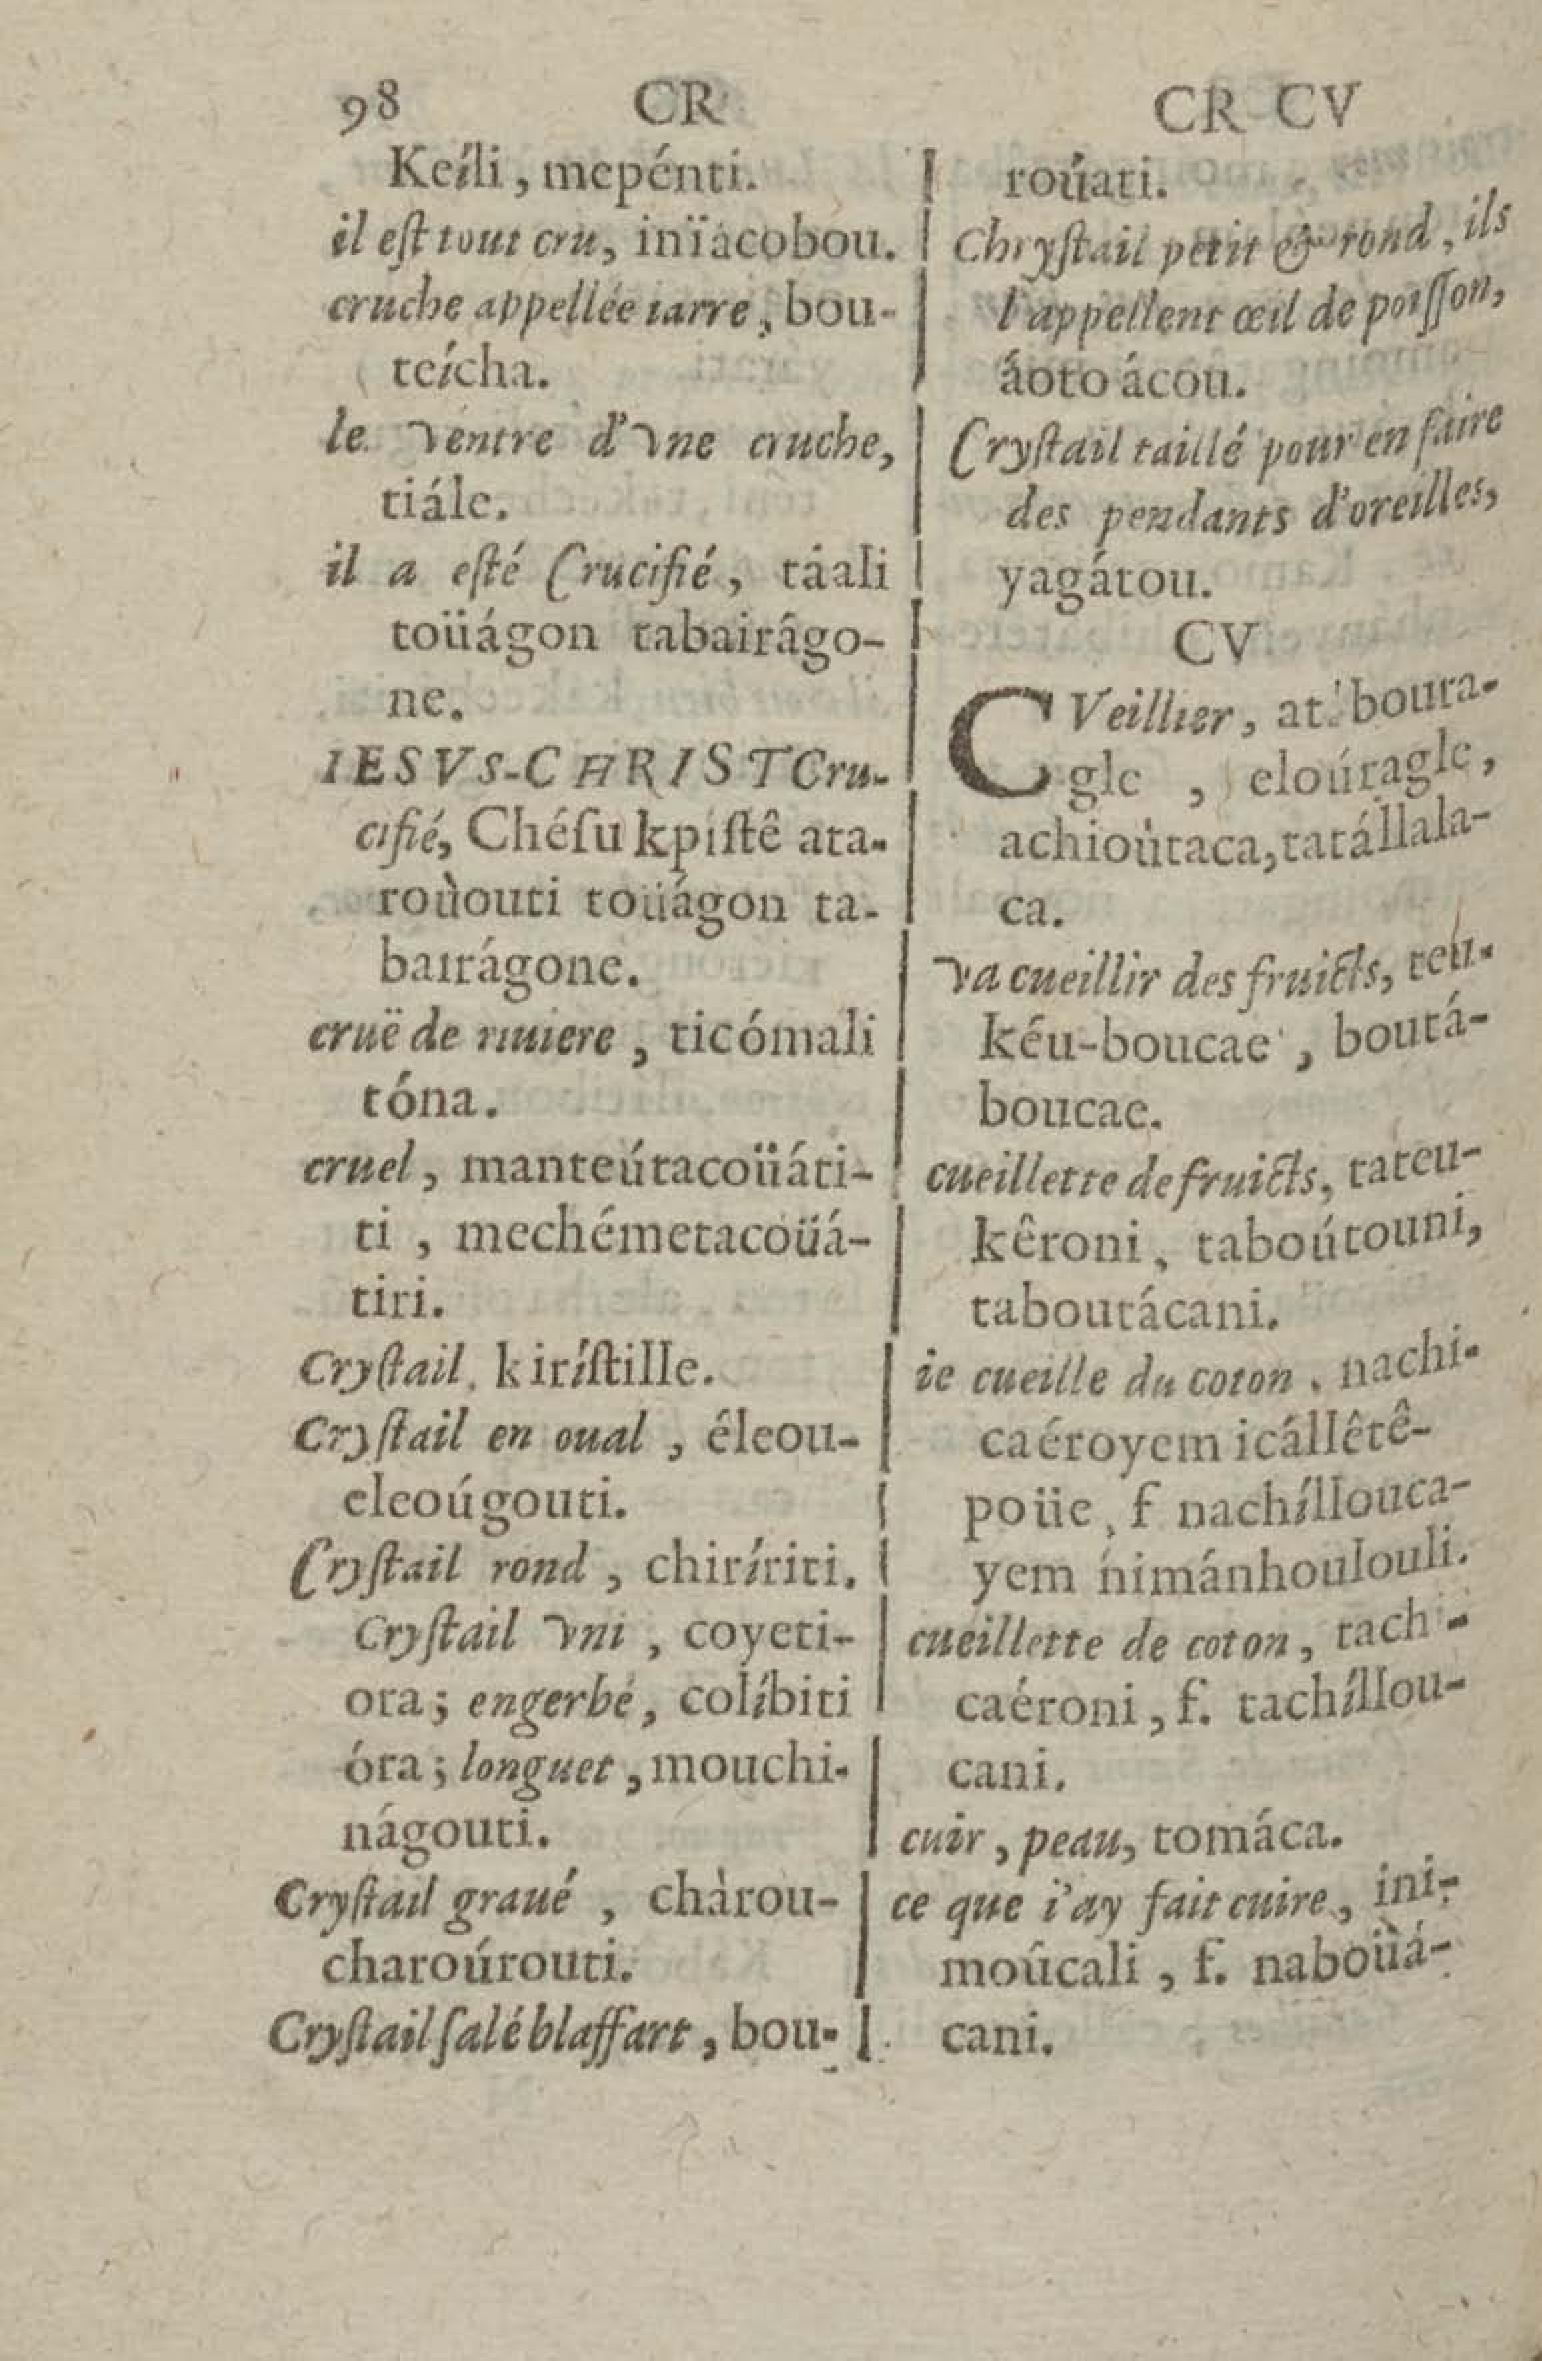 98 CR
Keíli, mepénti.
il eſt tout cru, inïacobou.
cruche appellée iarre, bou-
teícha.
le ventre d'vne cruche,
tiále.
il a eſté Crucifié, táali
toüágon tabairágo-
ne.
IESVS-CHRIST Cru-
cifié, Chéſu kpiſtê ata-
roùouti toüágon ta-
bairágone.
cruë de riuiere, ticómali
tóna.
cruel, manteútacoüáti-
ti, mechémetacoüá-
tiri.
Cryſtail, kiríſtille.
Cryſtail en oual, éleou-
eleoúgouti.
Cryſtail rond, chiríriti.
Cryſtail vni, coyeti-
ora; engerbé, colíbiti
óra; longuet, mouchi-
nágouti.
Cryſtail graué, chàrou-
charoúrouti.
Cryſtail ſalé blaffart, bou-
CR CV
roúati.
Chryſtail petit & rond, ils
l'appellent œil de poiſſon,
áoto ácou.
Cryſtail taillé pour en faire
des pendants d'oreilles,
yagátou.
CV
CVeillier, at boura-
gle, eloúragle,
achioùtaca, tatállala-
ca.
va cueillir des fruicts, teu-
kéu-boucae, boutá-
boucae.
cueillette de fruicts, tateu-
kêroni, taboútouni,
taboutácani.
ie cueille du coton, nachi-
caéroyem icállêtê-
poüe, f nachíllouca-
yem nimánhoulouli.
cueillette de coton, tachi-
caéroni, f. tachíllou-
cani.
cuir, peau, tomáca.
ce que i'ay fait cuire, ini-
moûcali, f. naboüá-
cani.